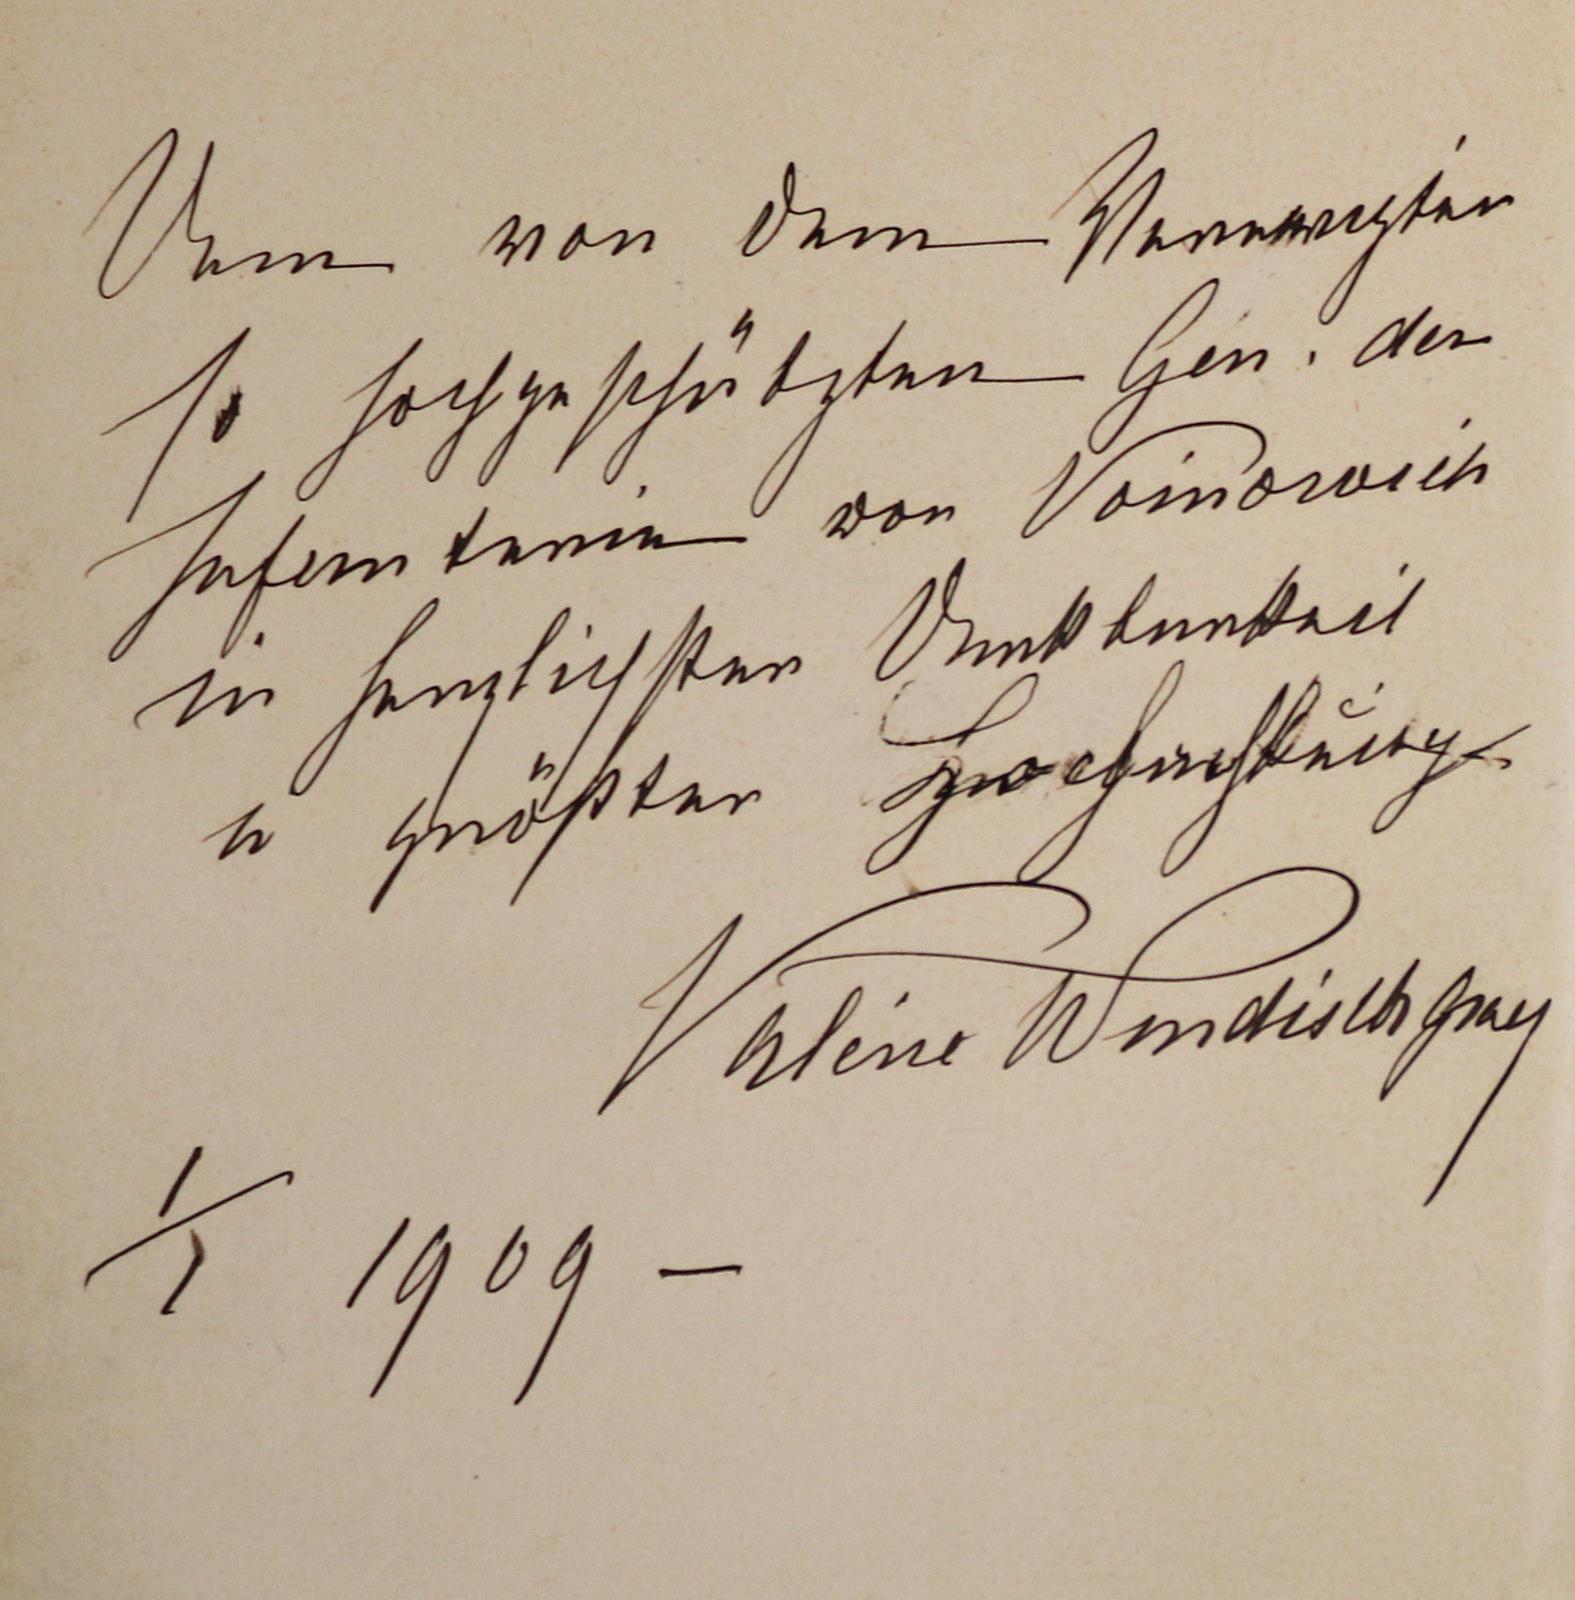 Dem von dem Verewigten
so hochgeschätzten Gen. der
Infanterie von Voinovich
in herzlichster Dankbarkeit
u größter Hochachtung
Valerie Windischgraez
1/1 1909 –